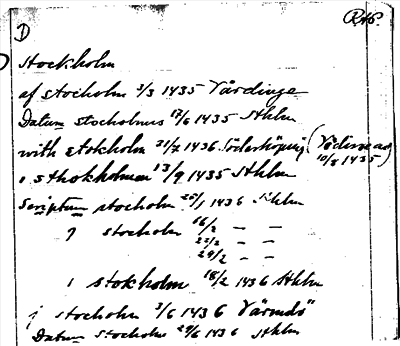 D RAP.
Stockholm
af stocholm 3/3 1435 Vårdinge
Datum stocholmis 17/6 1435 Sthlm
with stokholm 21/7 1436 Söderköping (Vädersead
i sthokholmen 13/9 1435 Sthlm 10/8 1435)
Scriptum stocholm 25/1 1436 Sthlm
j stocholm 16/2 — —
22/2 — —
29/2 — —
i stokholm 18/2 1436 Sthlm
j stocholm 3/6 1436 Värmdö
Datum stocholm 29/6 1436 Sthlm